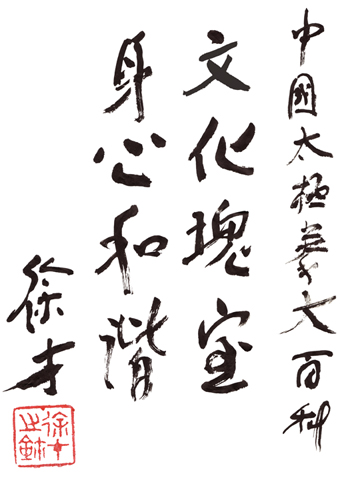 中國太極拳大百科
文化瑰宝
身心和谐
徐才
徐才之